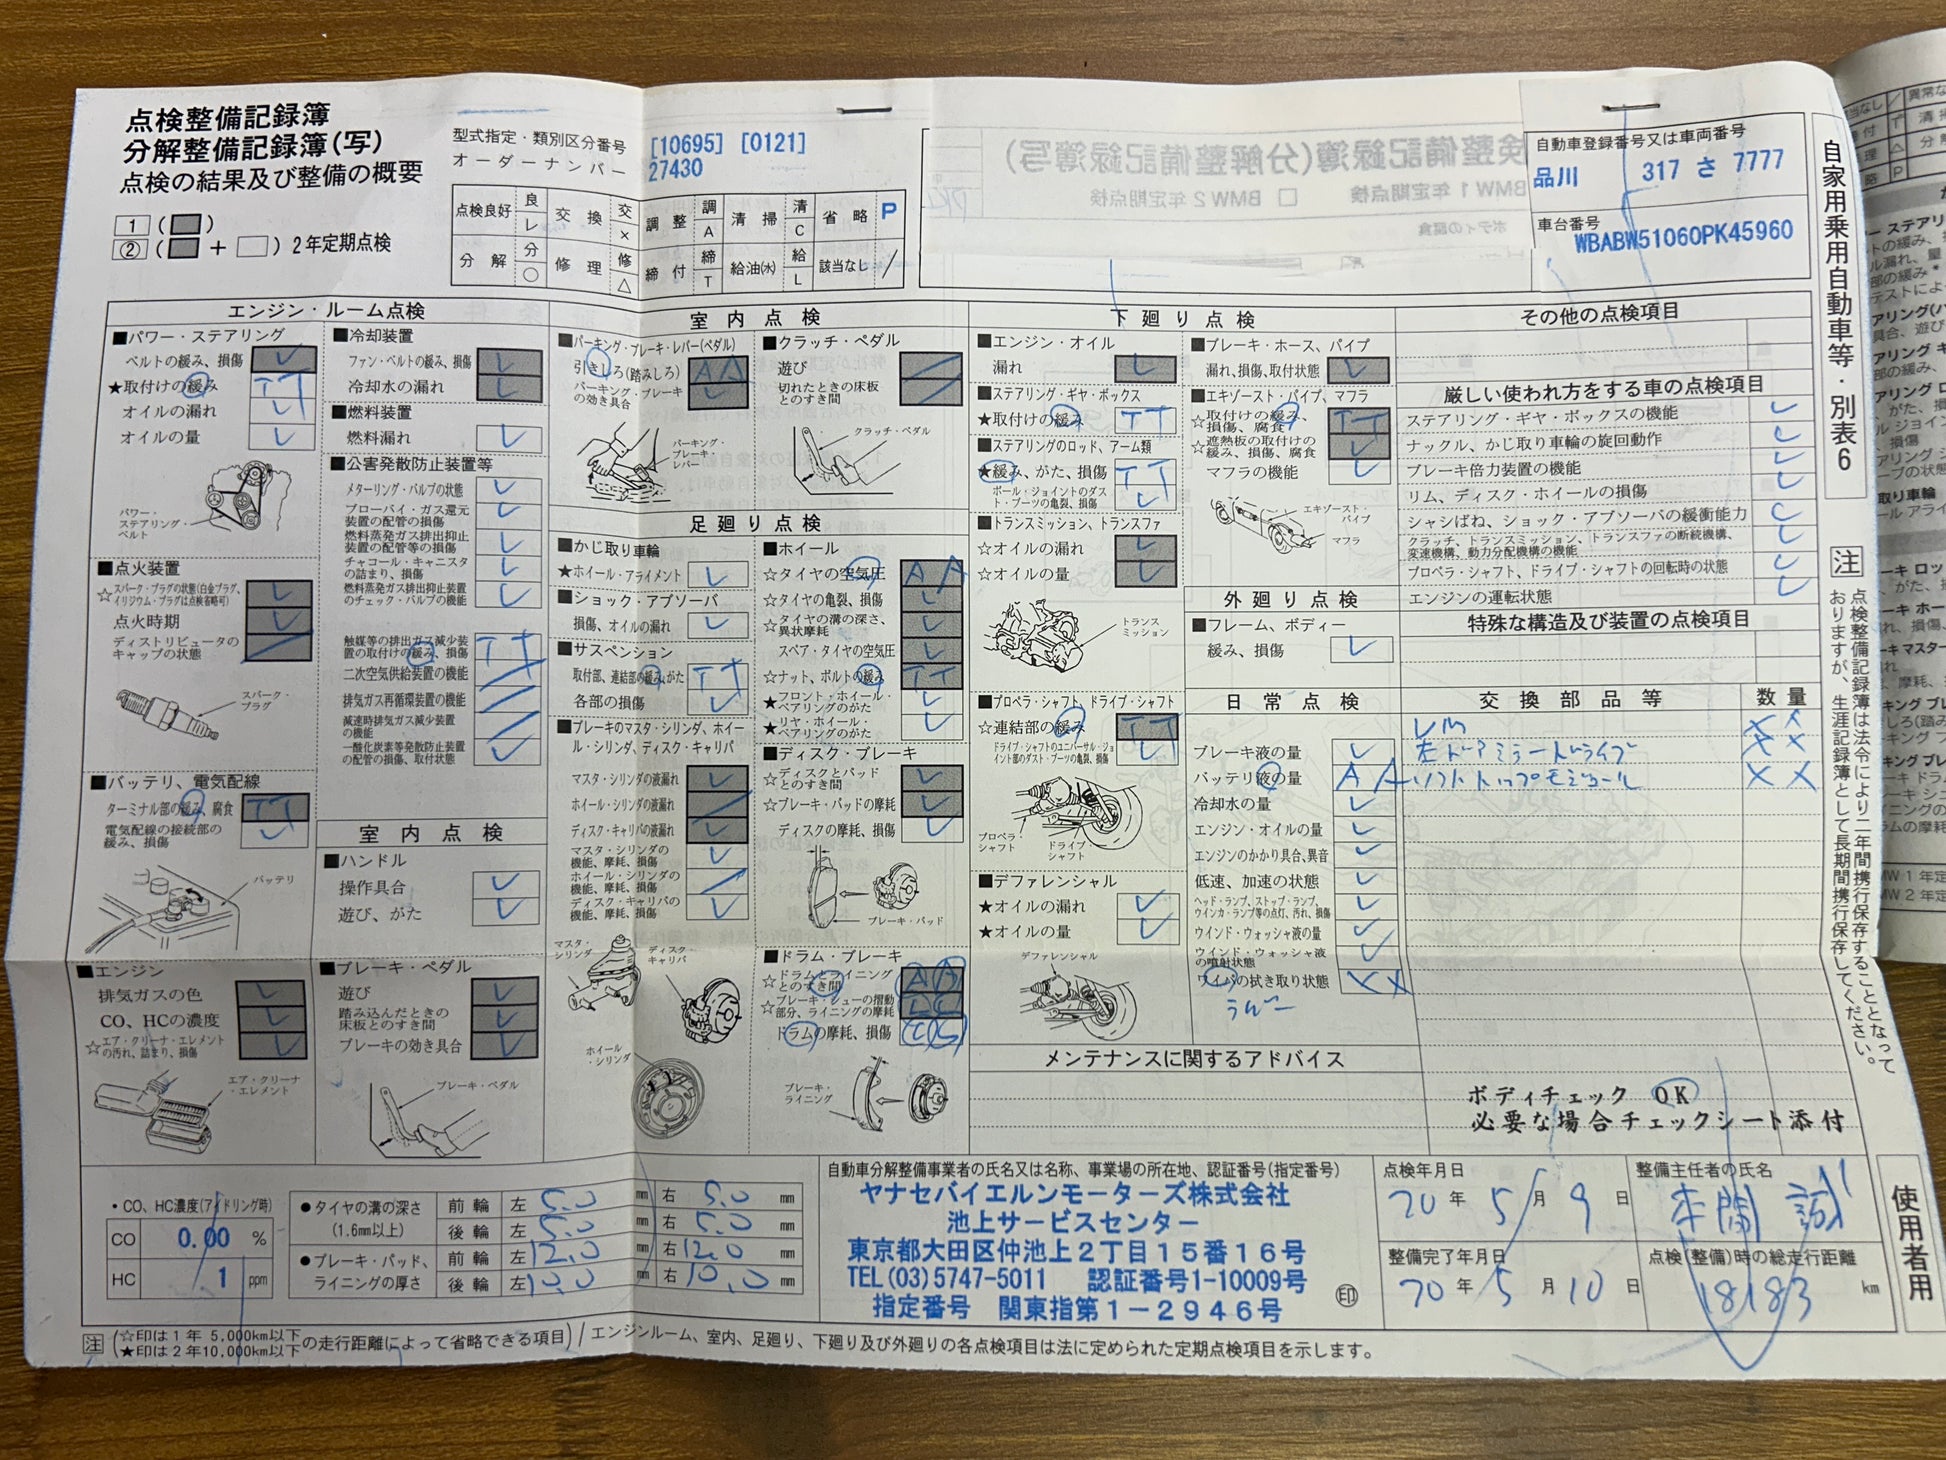 点検整備記録簿
分解整備記録簿(写)
点検の結果及び整備の概要
1 ( )
② ( + ) 2年定期点検
型式指定・類別区分番号 [10695] [0121]
オーダーナンバー 27430
点検良好 良 レ 交換 交 × 調整 調 A 清掃 清 C 省略 P
分解 分 ○ 修理 修 △ 締付 締 T 給油(水) 給 L 該当なし /
自動車登録番号又は車両番号
品川 317 さ 7777
車台番号
WBABW51060PK45960
自家用乗用自動車等・別表6
エンジン・ルーム点検
■パワー・ステアリング
ベルトの緩み、損傷 レ
★取付けの緩み T T
オイルの漏れ レ
オイルの量 レ
パワー・ステアリング・ベルト
■点火装置
☆スパーク・プラグの状態(白金プラグ、イリジウム・プラグは点検省略可) レ
点火時期 レ
ディストリビュータのキャップの状態 /
スパーク・プラグ
■バッテリ、電気配線
ターミナル部の緩み、腐食 T T
電気配線の接続部の緩み、損傷 レ
バッテリ
■エンジン
排気ガスの色 レ
CO、HCの濃度 レ
☆エア・クリーナ・エレメントの汚れ、詰まり、損傷 レ
エア・クリーナ・エレメント
■冷却装置
ファン・ベルトの緩み、損傷 レ
冷却水の漏れ レ
■燃料装置
燃料漏れ レ
■公害発散防止装置等
メターリング・バルブの状態 レ
ブローバイ・ガス還元装置の配管の損傷 レ
燃料蒸発ガス排出抑止装置の配管等の損傷 レ
チャコール・キャニスタの詰まり、損傷 レ
燃料蒸発ガス排出抑止装置のチェック・バルブの機能 レ
触媒等の排出ガス減少装置の取付けの緩み、損傷 T T
二次空気供給装置の機能 /
排気ガス再循環装置の機能 /
減速時排気ガス減少装置の機能 /
一酸化炭素等発散防止装置の配管の損傷、取付状態 レ
室内点検
■ハンドル
操作具合 レ
遊び、がた レ
■ブレーキ・ペダル
遊び レ
踏み込んだときの床板とのすき間 レ
ブレーキの効き具合 レ
ブレーキ・ペダル
室内点検
■パーキング・ブレーキ・レバー(ペダル)
引きしろ(踏みしろ) A A
パーキング・ブレーキの効き具合 レ
パーキング・ブレーキ・レバー
■クラッチ・ペダル
遊び /
切れたときの床板とのすき間 /
クラッチ・ペダル
足廻り点検
■かじ取り車輪
★ホイール・アライメント レ
■ショック・アブソーバ
損傷、オイルの漏れ レ
■サスペンション
取付部、連結部の緩み、がた T T
各部の損傷 レ
■ブレーキのマスタ・シリンダ、ホイール・シリンダ、ディスク・キャリパ
マスタ・シリンダの液漏れ レ
ホイール・シリンダの液漏れ /
ディスク・キャリパの液漏れ レ
マスタ・シリンダの機能、摩耗、損傷 レ
ホイール・シリンダの機能、摩耗、損傷 /
ディスク・キャリパの機能、摩耗、損傷 レ
マスタ・シリンダ
ディスク・キャリパ
ホイール・シリンダ
■ホイール
☆タイヤの空気圧 A A
☆タイヤの亀裂、損傷 レ
☆タイヤの溝の深さ、異状摩耗 レ
スペア・タイヤの空気圧 レ
☆ナット、ボルトの緩み T T
★フロント・ホイール・ベアリングのがた レ
★リヤ・ホイール・ベアリングのがた レ
■ディスク・ブレーキ
☆ディスクとパッドとのすき間 レ
☆ブレーキ・パッドの摩耗 レ
ディスクの摩耗、損傷 レ
ブレーキ・パッド
■ドラム・ブレーキ
☆ドラムとライニングとのすき間 A A
☆ブレーキ・シューの摺動部分、ライニングの摩耗 L C
ドラムの摩耗、損傷
ブレーキ・ライニング
下廻り点検
■エンジン・オイル
漏れ レ
■ステアリング・ギヤ・ボックス
★取付けの緩み T T
■ステアリングのロッド、アーム類
★緩み、がた、損傷 T T
ボール・ジョイントのダスト・ブーツの亀裂、損傷 レ
■トランスミッション、トランスファ
☆オイルの漏れ レ
☆オイルの量 レ
トランスミッション
■プロペラ・シャフト、ドライブ・シャフト
☆連結部の緩み T T
ドライブ・シャフトのユニバーサル・ジョイント部のダスト・ブーツの亀裂、損傷 レ
プロペラ・シャフト
ドライブ・シャフト
■デファレンシャル
★オイルの漏れ レ
★オイルの量 レ
デファレンシャル
■ブレーキ・ホース、パイプ
漏れ、損傷、取付状態 レ
■エキゾースト・パイプ、マフラ
☆取付けの緩み、損傷、腐食 T T
☆遮熱板の取付けの緩み、損傷、腐食 レ
マフラの機能 レ
エキゾースト・パイプ
マフラ
外廻り点検
■フレーム、ボディー
緩み、損傷 レ
日常点検
ブレーキ液の量 レ
バッテリ液の量 A A
冷却水の量 レ
エンジン・オイルの量 レ
エンジンのかかり具合、異音 レ
低速、加速の状態 レ
ヘッド・ランプ、ストップ・ランプ、ウインカ・ランプ等の点灯、汚れ、損傷 レ
ウインド・ウォッシャ液の量 レ
ウインド・ウォッシャ液の噴射状態 レ
ワイパの拭き取り状態 × ×
ラバー
その他の点検項目
厳しい使われ方をする車の点検項目
ステアリング・ギヤ・ボックスの機能 レ
ナックル、かじ取り車輪の旋回動作 レ
ブレーキ倍力装置の機能 レ
リム、ディスク・ホイールの損傷 レ
シャシばね、ショック・アブソーバの緩衝能力 レ
クラッチ、トランスミッション、トランスファの断続機構、変速機構、動力分配機構の機能 レ
プロペラ・シャフト、ドライブ・シャフトの回転時の状態 レ
エンジンの運転状態 レ
特殊な構造及び装置の点検項目
交換部品等 数量
左ドアミラー × ×
ソフトトップモジュール × ×
メンテナンスに関するアドバイス
ボディチェック OK
必要な場合チェックシート添付
注 点検整備記録簿は法令により二年間携行保存することとなっておりますが、生涯記録簿として長期間携行保存してください。
・CO、HC濃度(アイドリング時)
CO 0.00 %
HC 1 ppm
●タイヤの溝の深さ(1.6mm以上) 前輪 左 5.0 mm 右 5.0 mm
後輪 左 5.0 mm 右 5.0 mm
●ブレーキ・パッド、ライニングの厚さ 前輪 左 12.0 mm 右 12.0 mm
後輪 左 10.0 mm 右 10.0 mm
自動車分解整備事業者の氏名又は名称、事業場の所在地、認証番号(指定番号)
ヤナセバイエルンモーターズ株式会社
池上サービスセンター
東京都大田区仲池上2丁目15番16号
TEL(03)5747-5011 認証番号1-10009号
指定番号 関東指第1-2946号
印
点検年月日
20年 5月 9日
整備主任者の氏名
整備完了年月日
20年 5月 10日
点検(整備)時の総走行距離
18183 km
使用者用
注 (☆印は1年 5,000km以下 ★印は2年10,000km以下 の走行距離によって省略できる項目) / エンジンルーム、室内、足廻り、下廻り及び外廻りの各点検項目は法に定められた定期点検項目を示します。